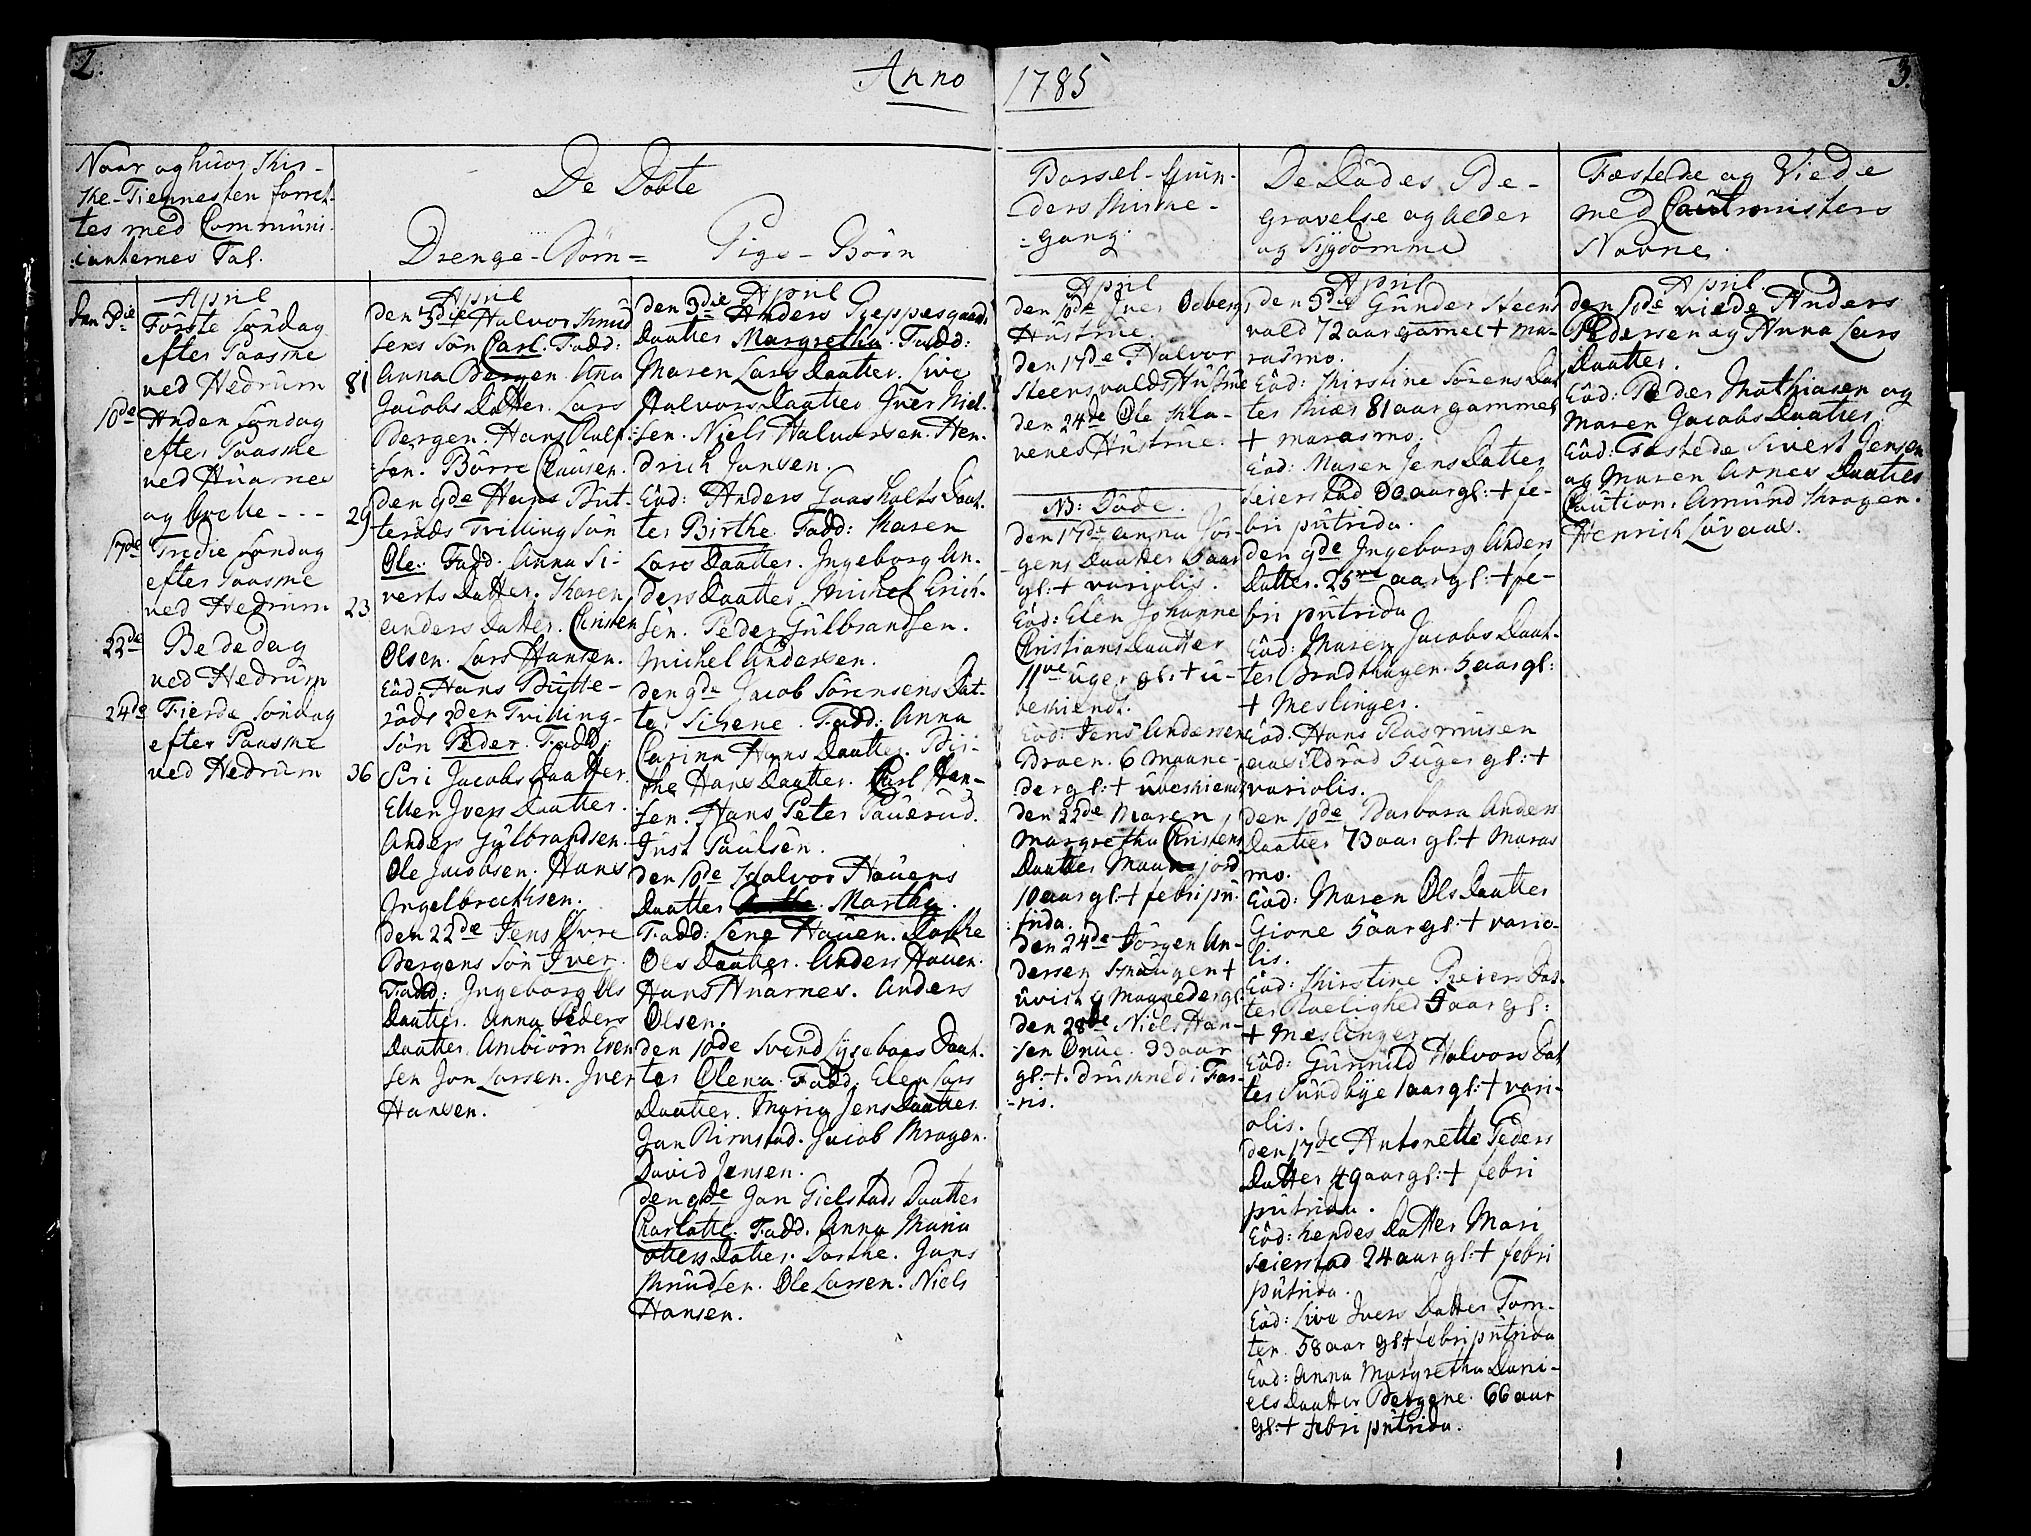 2.
Anno
1785
3.
Naar og hvor Kir-
ke-Tiennesten forret-
tes med Communi-
:canternes Tal.
De Döbte
Drenge-Börn=
Pige-Börn
Barsel-Qvin-
ders Kirke-
:gang.
De Dödes Be-
gravelse og Alder
og Sygdomme
Fæstede og Viede
med Cautionisters
Navne.
April
Den 3die Förste Söndag
efter Paaske
ved Hedrum 81
10de Anden Söndag
efter Paaske
ved Hvarnes
og Goche - - - 29
17de Tredie Söndag
efter Paaske
ved Hedrum 23
22de Bededag
ved Hedrum
24de Fierde Söndag
efter Paaske
ved Hedrum 36
April
den 3die Halvor Knud
sens Sön Carl. Fadd:
Anna Bergen. Ana
Jacobs Datter. Lars
Bergen. Hans Rolf-
sen. Börre Clausen.
den 9de Hans But-
teröds Tvilling Sön
Ole. Fadd. Anna Si-
verts Datter. Karen
Anders Datter. Christen
Olsen. Lars Hansen.
Eod: Hans Butte-
röds 2den Tvilling-
Sön Peder. Fadd:
Siri Jacobs Daatter.
Ellen Ivers Daatter.
Anders Gulbrandsen.
Ole Jacobsen. Hans
Ingelbrechtsen.
den 22de Jens Övre
Bergens Sön Iver.
Fadd: Ingeborg Ols
Daatter. Anna Peders
Daatter. Ambiörn Even
sen Jon Larsen. Iver
Hansen.
April
den 3die Anders Gieppesgaards
Daatter Margretha. Fadd:
Maren Lars Daatter. Live
Halvors Daatter Iver Niel-
sen. Niels Halvorsen. Hen-
drich Jansen.
Eod: Anders Gaasholts Daat-
ter Birthe. Fadd: Karen
Lars Daatter. Ingeborg An-
ders Daatter Michel Erich-
sen. Peder Gulbrandsen.
Michel Andersen.
den 9de Jacob Sörensens Dat-
ter Sirene. Fadd: Anna
Carina Hans Daatter. Bir-
the Hans Daatter. Carl Han-
sen. Hans Peter Pauerud.
Just Paulsen.
den 10de Halvor Hauens
Daatter Martha.
Fadd: Lene Hauen. Dorthe
Ols Daatter. Anders Hauen.
Hans Hvarnes. Anders
Olsen.
den 10de Svend Lysebaes Daat-
ter Olena. Fadd. Elen Lars
Daatter. Maria Jens Daatter.
Jan Rimstad. Jacob Kragen.
David Jensen.
den 9de Jan Gielstads Daatter
Charlatte. Fadd. Anna Maria
Daatter. Dorthe. Jans
Knudsen. Ole Larsen. Niels
Hansen.
April
den 10de Iver Odberg
Hustrue
den 17de Halvor
Steensvalds Hustrue
den 24de Ole Kla-
venes Hustrue.
NB: Döde.
den 17de Anna Jör-
gens Daatter 5 aar
gl: + variolis.
Eod: Elen Johanne
Christians Daatter
11ve uger gl: + u-
bekiendt.
Eod: Jens Andersen
Braen. 6 Maane-
der gl: + ubekiendt
den 22de Maren
Margretha Christens
Daatter Maanejord
10 aar gl: + febri pu-
trida.
den 24de Jörgen An-
dersen Skaugen +
uvist 9 Maaneder gl:
den 28de Niels Han-
sen Brue. 33 aar
gl: +. druknedi Far-
-ris.
April
den 3die Gunder Steens
vald 72 aar gamel + ma-
rasmo.
Eod: Kirstine Sörens Dat
ter Kiær 81 aar gammel
+ marasmo.
Eod: Maren Jens Datter
Seierstad 60 aar gl: + fe-
bri putrida.
den 9de Ingeborg Anders
Datter. 25ve aar gl: + fe-
bri putrida
Eod: Maren Jacobs Daat-
ter Bradthagen. 5 aar gl:
+ Meslinger.
Eod: Hans Rasmusen
Aasildröd 5 uger gl: +
variolis.
den 10de Barbara Anders
Daatter 73 aar gl: + Maras
mo.
Eod: Maren Ols Daatter
Gione 5 aar gl: + vario-
lis.
Eod: Kirstine Reiers Dat-
ter Roelighed 5 aar gl:
+ Meslinger
Eod: Gunnild Halvors Dat
ter Sundbye 1 aar gl: + vari-
olis.
den 17de Antonette Peders
Datter 49 aar gl: + febri
putrida.
Eod: hendes Datter Mari
Seierstad 24 aar gl: + febri
putrida.
Eod: Live Ivers Datter Tom-
ter. 58 aar gl + febri putrida
Eod: Anna Margretha Dani-
els Daatter Bergene. 66 aar
gl: + febri putrida.
April
den 10de viede Anders
Pedersen og Anna Lars
Daatter.
Eod: Peder Mathiasen og
Maren Jacobs Daatter.
Eod. Fæstede Sivert Jensen
og Maren Arnes Daatter
Caution: Amund Kragen.
Henrich Löveaae.